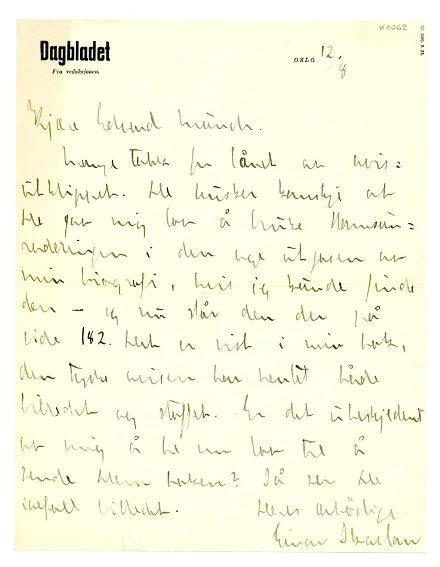 K1062
Dagbladet
Fra redaksjonen.
OSLO 12/8
Kjære Edvard Munch.
Mange takk for lånet av avis=
utklippet. De husker kanskje at
De gav mig lov å bruke Hamsun=
raderingen i den nye utgaven av
min biografi, hvis jeg kunde finde
den – og nu står den der på
side 182. Det er vist i min bok,
den tyske avisen har hentet både
billedet og stoffet. Er det ubeskjedent
av mig å be om lov til å
sende Dem boken? Så ser De
iallfall billedet. Deres ærbødige
Einar Skavlan